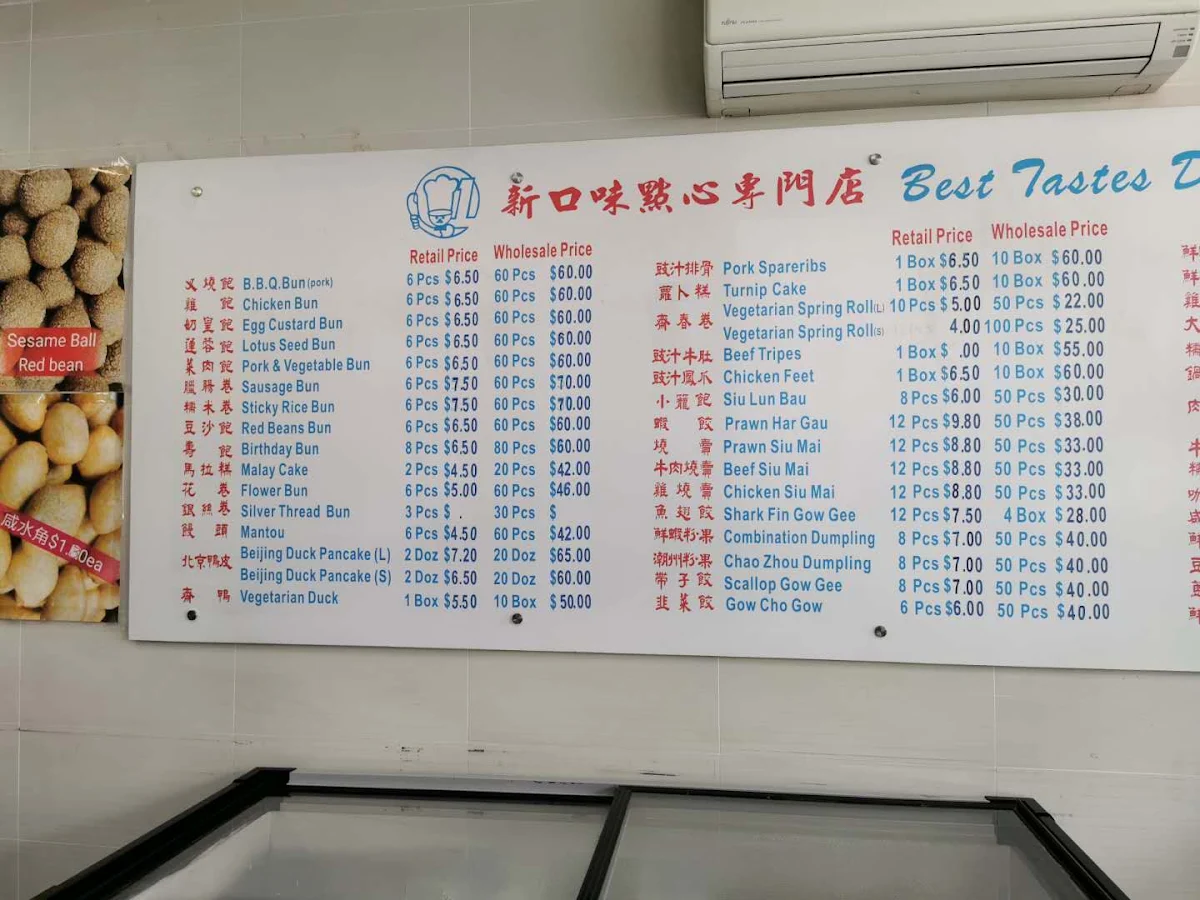 FUJITSU
新口味點心專門店 Best Tastes D
Sesame Ball
Red bean
咸水角$1. 0ea
Retail Price Wholesale Price
叉燒飽 B.B.Q.Bun(pork) 6 Pcs $6.50 60 Pcs $60.00
雞飽 Chicken Bun 6 Pcs $6.50 60 Pcs $60.00
奶皇飽 Egg Custard Bun 6 Pcs $6.50 60 Pcs $60.00
蓮蓉飽 Lotus Seed Bun 6 Pcs $6.50 60 Pcs $60.00
菜肉飽 Pork & Vegetable Bun 6 Pcs $6.50 60 Pcs $60.00
臘腸卷 Sausage Bun 6 Pcs $7.50 60 Pcs $70.00
糯米卷 Sticky Rice Bun 6 Pcs $7.50 60 Pcs $70.00
豆沙飽 Red Beans Bun 6 Pcs $6.50 60 Pcs $60.00
壽飽 Birthday Bun 8 Pcs $6.50 80 Pcs $60.00
馬拉糕 Malay Cake 2 Pcs $4.50 20 Pcs $42.00
花卷 Flower Bun 6 Pcs $5.00 60 Pcs $46.00
銀絲卷 Silver Thread Bun 3 Pcs $ . 30 Pcs $
饅頭 Mantou 6 Pcs $4.50 60 Pcs $42.00
北京鴨皮 Beijing Duck Pancake (L) 2 Doz $7.20 20 Doz $65.00
Beijing Duck Pancake (S) 2 Doz $6.50 20 Doz $60.00
齋鴨 Vegetarian Duck 1 Box $5.50 10 Box $50.00
Retail Price Wholesale Price
豉汁排骨 Pork Spareribs 1 Box $6.50 10 Box $60.00
蘿卜糕 Turnip Cake 1 Box $6.50 10 Box $60.00
齋春卷 Vegetarian Spring Roll(L) 10 Pcs $5.00 50 Pcs $22.00
Vegetarian Spring Roll(S) 4.00 100 Pcs $25.00
豉汁牛肚 Beef Tripes 1 Box $ .00 10 Box $55.00
豉汁鳳爪 Chicken Feet 1 Box $6.50 10 Box $60.00
小籠飽 Siu Lun Bau 8 Pcs $6.00 50 Pcs $30.00
蝦餃 Prawn Har Gau 12 Pcs $9.80 50 Pcs $38.00
燒賣 Prawn Siu Mai 12 Pcs $8.80 50 Pcs $33.00
牛肉燒賣 Beef Siu Mai 12 Pcs $8.80 50 Pcs $33.00
雞燒賣 Chicken Siu Mai 12 Pcs $8.80 50 Pcs $33.00
魚翅餃 Shark Fin Gow Gee 12 Pcs $7.50 4 Box $28.00
鮮蝦粉果 Combination Dumpling 8 Pcs $7.00 50 Pcs $40.00
潮州粉果 Chao Zhou Dumpling 8 Pcs $7.00 50 Pcs $40.00
帶子餃 Scallop Gow Gee 8 Pcs $7.00 50 Pcs $40.00
韭菜餃 Gow Cho Gow 6 Pcs $6.00 50 Pcs $40.00